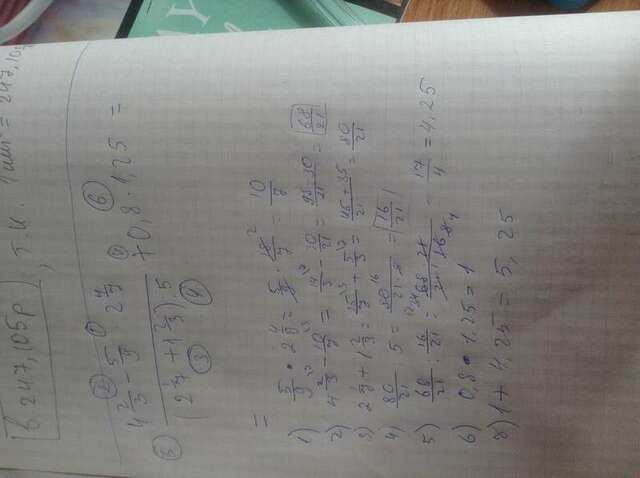 в 247,105р , т.к. 1 шт = 247,105
② ① 
4 2/3 - 5/9 · 2 4/7 ⑦ ⑥
⑤ ——— + 0,8 · 1,25 =
(2 1/7 + 1 2/3) : 5
③ ④
=
1) 5/9 · 2 4/7 = 5/9 · 18/7 = 10/7
2) 4 2/3 - 10/7 = 14/3 - 10/7 = 98-30/21 = 68/21
3) 2 1/7 + 1 2/3 = 15/7 + 5/3 = 45+35/21 = 80/21
4) 80/21 : 5 = 80/21·5 = 16/21
5) 68/21 : 16/21 = 68·21/21·16 = 17/4 = 4,25
6) 0,8 · 1,25 = 1
7) 1 + 4,25 = 5,25